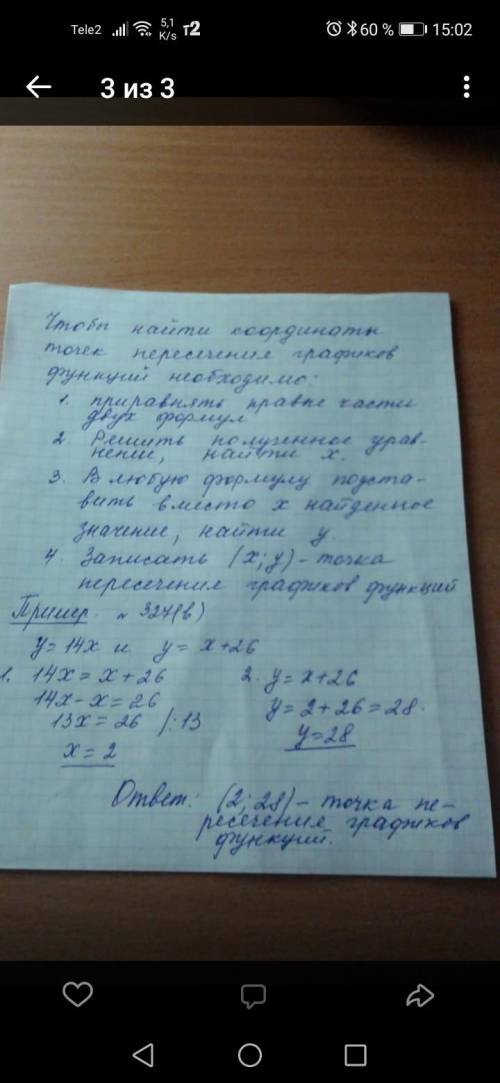 Tele2 5,1 K/s т2 60 % 15:02
3 из 3
Чтобы найти координаты
точек пересечения графиков
функций необходимо:
1. приравнять правые части
двух формул
2 Решить полученное урав-
нение, найти x.
3. В любую формулу подста-
вить вместо x найденное
значение, найти y.
4. Записать (x; y) - точка
пересечения графиков функций
Пример. № 327(в)
y = 14x и y = x+26
1. 14x = x + 26
14x - x = 26
13x = 26 /:13
x = 2
2. y = x+26
y = 2 + 26 = 28.
y = 28
Ответ: (2; 28) - точка пе-
ресечения графиков
функций.